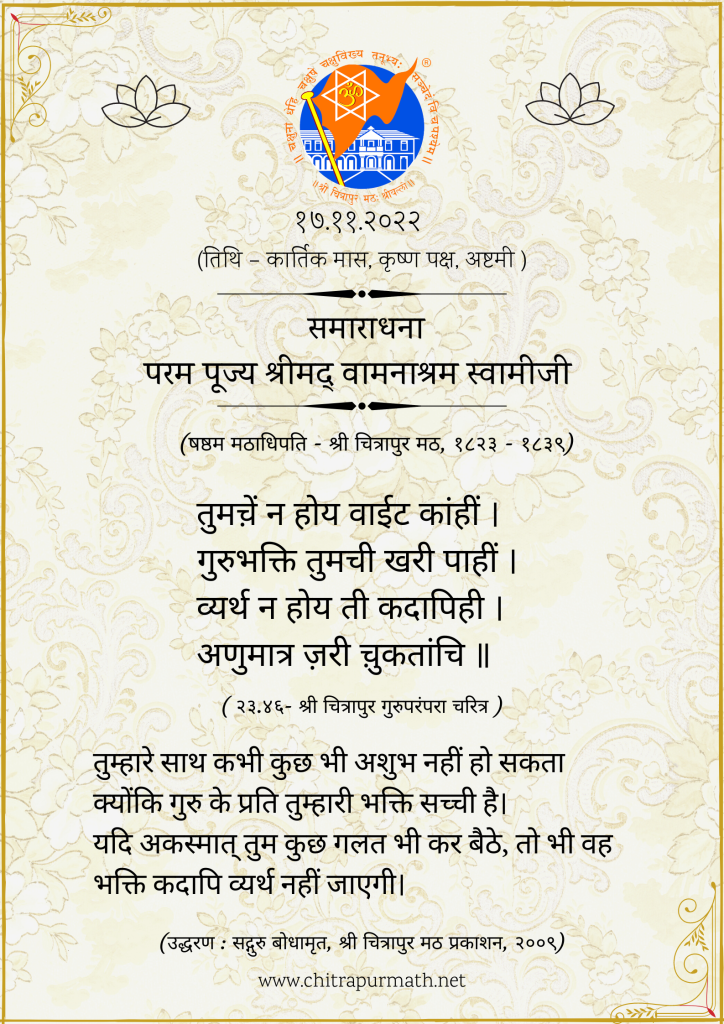 ॥ चक्षुर्नो धेहि चक्षुषे चक्षुर्विख्यै तनूभ्यः
॥ श्री चित्रापुर मठः
१७.११.२०२२
(तिथि – कार्तिक मास, कृष्ण पक्ष, अष्टमी )
समाराधना
परम पूज्य श्रीमद् वामनाश्रम स्वामीजी
(षष्ठम मठाधिपति - श्री चित्रापुर मठ, १८२३ - १८३९)
तुमच़ें न होय वाईट कांहीं ।
गुरुभक्ति तुमची खरी पाहीं ।
व्यर्थ न होय ती कदापिही ।
अणुमात्र ज़री च़ुकतांचि ॥
( २३.४६- श्री चित्रापुर गुरुपरंपरा चरित्र )
तुम्हारे साथ कभी कुछ भी अशुभ नहीं हो सकता
क्योंकि गुरु के प्रति तुम्हारी भक्ति सच्ची है।
यदि अकस्मात् तुम कुछ गलत भी कर बैठे, तो भी वह
भक्ति कदापि व्यर्थ नहीं जाएगी।
(उद्धरण : सद्गुरु बोधामृत, श्री चित्रापुर मठ प्रकाशन, २००९)
www.chitrapurmath.net